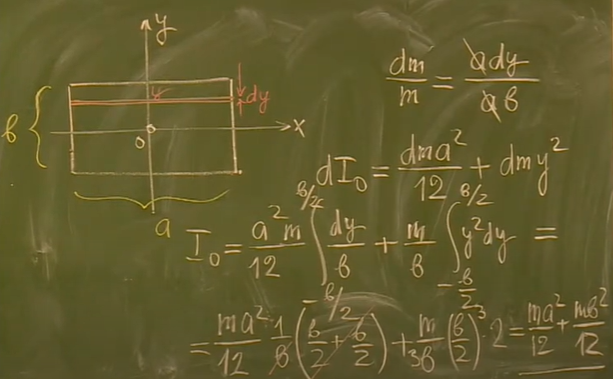 y
dy
y
b
0
x
a
dm/m = a dy/a b
dI₀ = dma²/12 + dmy²
I₀ = a²m/12 ∫_{-b/2}^{b/2} dy/b + m/b ∫_{-b/2}^{b/2} y²dy =
= ma²/12 1/b (b/2 + b/2) + m/3b (b/2)³ 2 = ma²/12 + mb²/12